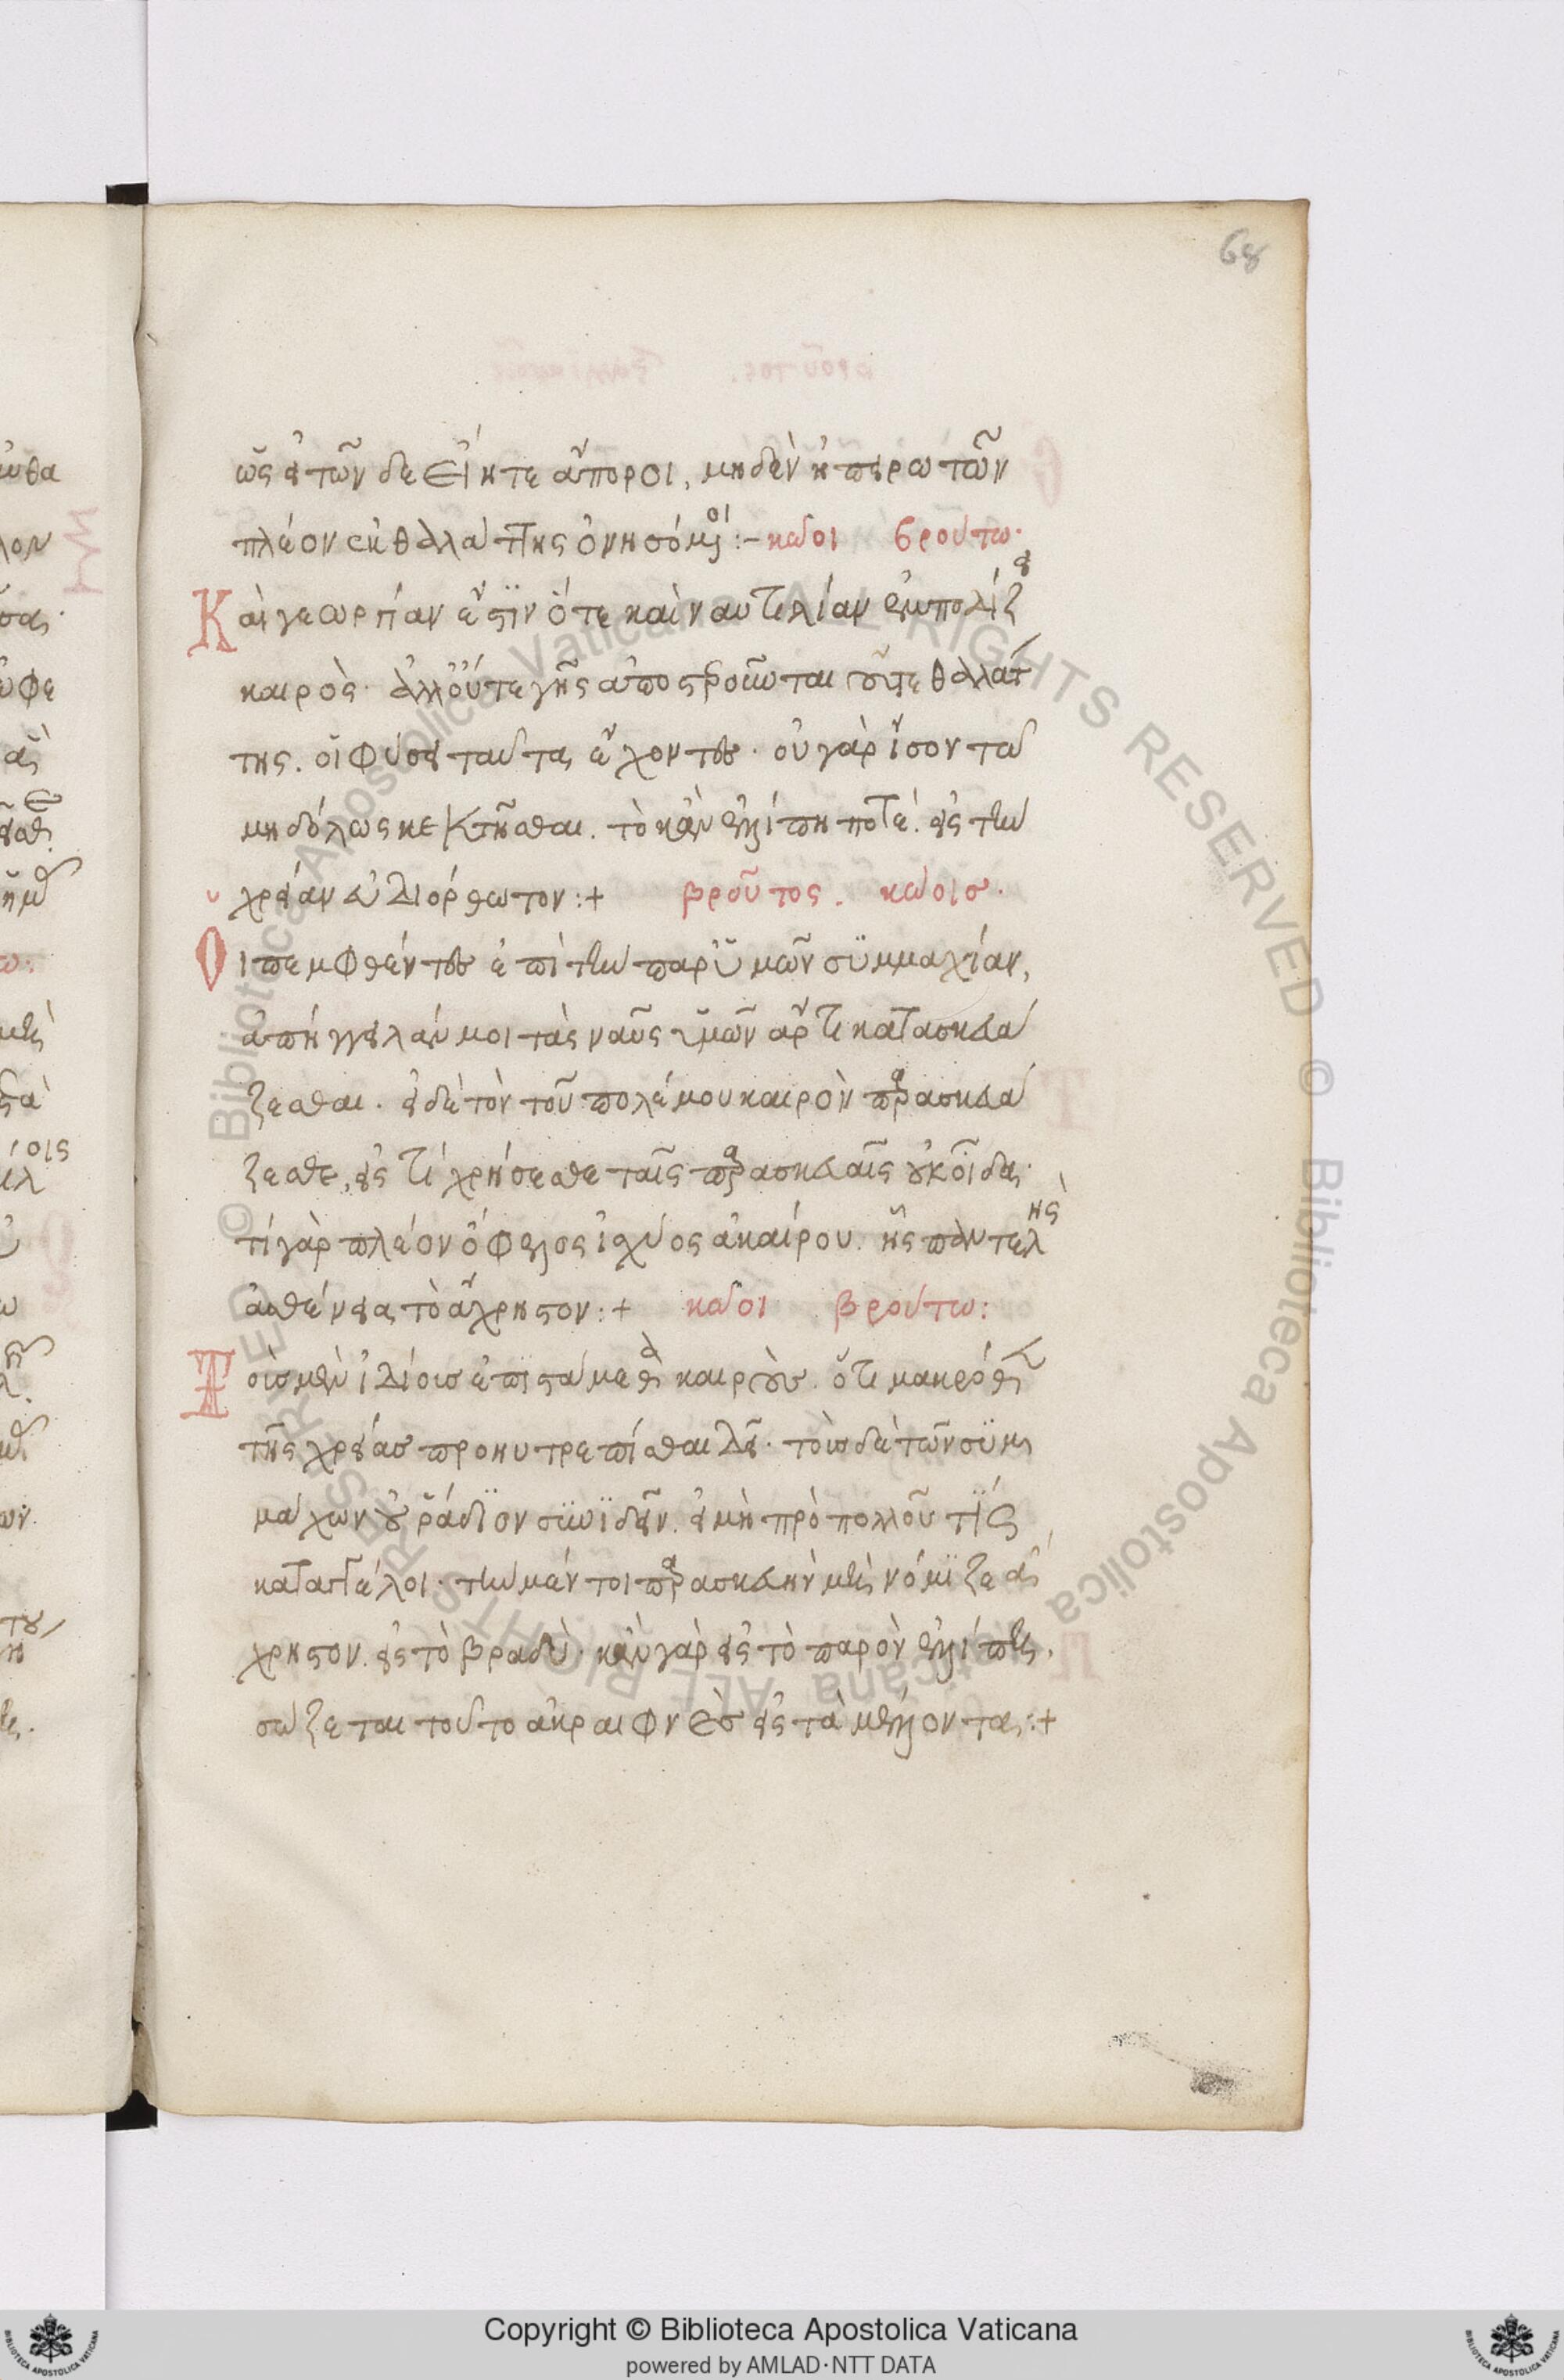 68
ὡς εἰ τῶνδε εἴητε ἄποροι, μηδὲν ἡ πειρωτῶν
πλέον ἐκ θαλάττης ὀνησόμενοι :– κῶοι βρούτω·
Καὶ γεωργίαν ἔστιν ὅτε καὶ ναυτιλίαν ἐμποδίζει
καιρὸς· ἀλλ' οὔτε γῆς ἀποστεροῦνται οὔτε θαλάτ
της. οἱ φύσει ταῦτα ἔχοντες· οὐ γὰρ ἴσον τῶ
μηδόλως κεκτῆσθαι. τὸ κἂν ἐλλίπη ποτέ. εἰς τὴν
χρείαν εὐδιόρθωτον :+ βροῦτος. κώοισ·
Οἱ πεμφθέντες ἐπὶ τὴν παρ' ὑμῶν συμμαχίαν,
ἀπήγγειλάν μοι τὰς ναῦς ὑμῶν ἄρτι κατασκευά
ζεσθαι. εἰ δὲ τὸν τοῦ πολέμου καιρὸν παρασκευά
ζεσθε, εἰς τί χρήσεσθε ταῖς παρασκευαῖς οὐκ οἶδα·
τί γὰρ πλέον ὄφελος ἰσχύος ἀκαίρου. ἢ εἰς παντελὴς
ἀσθένεια τὸ ἄχρηστον :+ κῶοι βρούτω:
Τοῖσ μὲν ἰδίοισ ἐπιστάμεθα καιροὺσ. ὅτι μακρόθεν
τῆς χρείασ προηυτρεπίσθαι δεῖ· τοῖσ δὲ τῶν συμ
μάχων οὐ ῥάδιον συνιδεῖν. εἰ μὴ πρὸ πολλοῦ τίς
καταγγέλοι· τὴν μέν τοι παρασκευὴν μὴ νόμιζε ἄ
χρηστον. εἰς τὸ βραδὺ· κἂν γὰρ εἰς τὸ παρὸν ἐλλίπης,
σώζεται τοῦτο ἀκραιφνὲσ εἰς τὰ μέλλοντα :+
Copyright © Biblioteca Apostolica Vaticana
powered by AMLAD·NTT DATA